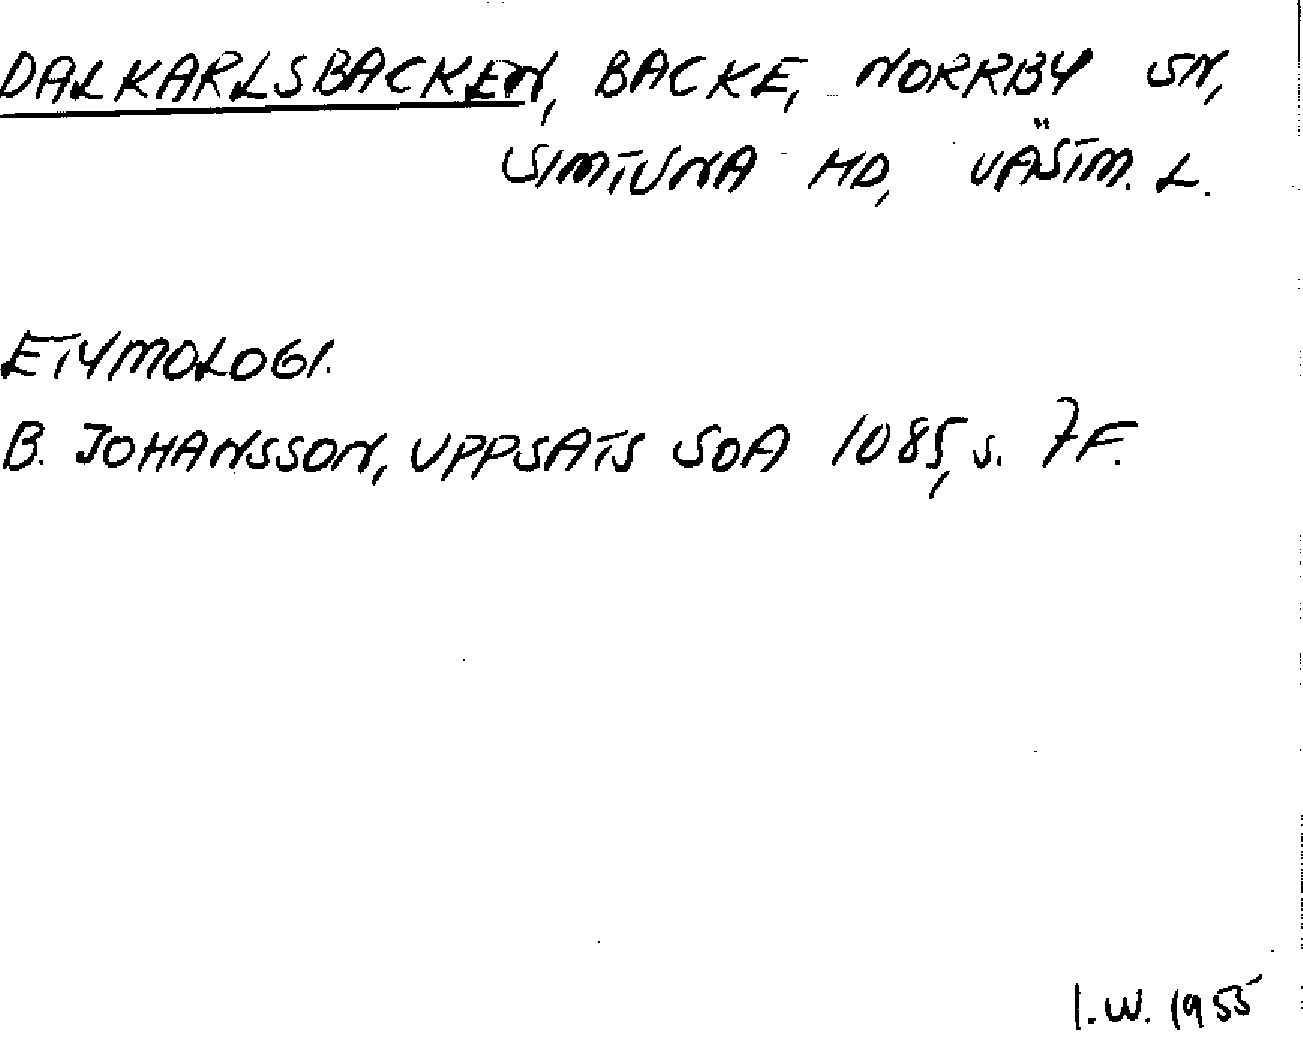 DALKARLSBACKEN, BACKE, NORRBY SN,
SIMTUNA HD, VÄSTM. L.
ETYMOLOGI.
B. JOHANSSON, UPPSATS SOA 1085, S. 7F.
I.W. 1955